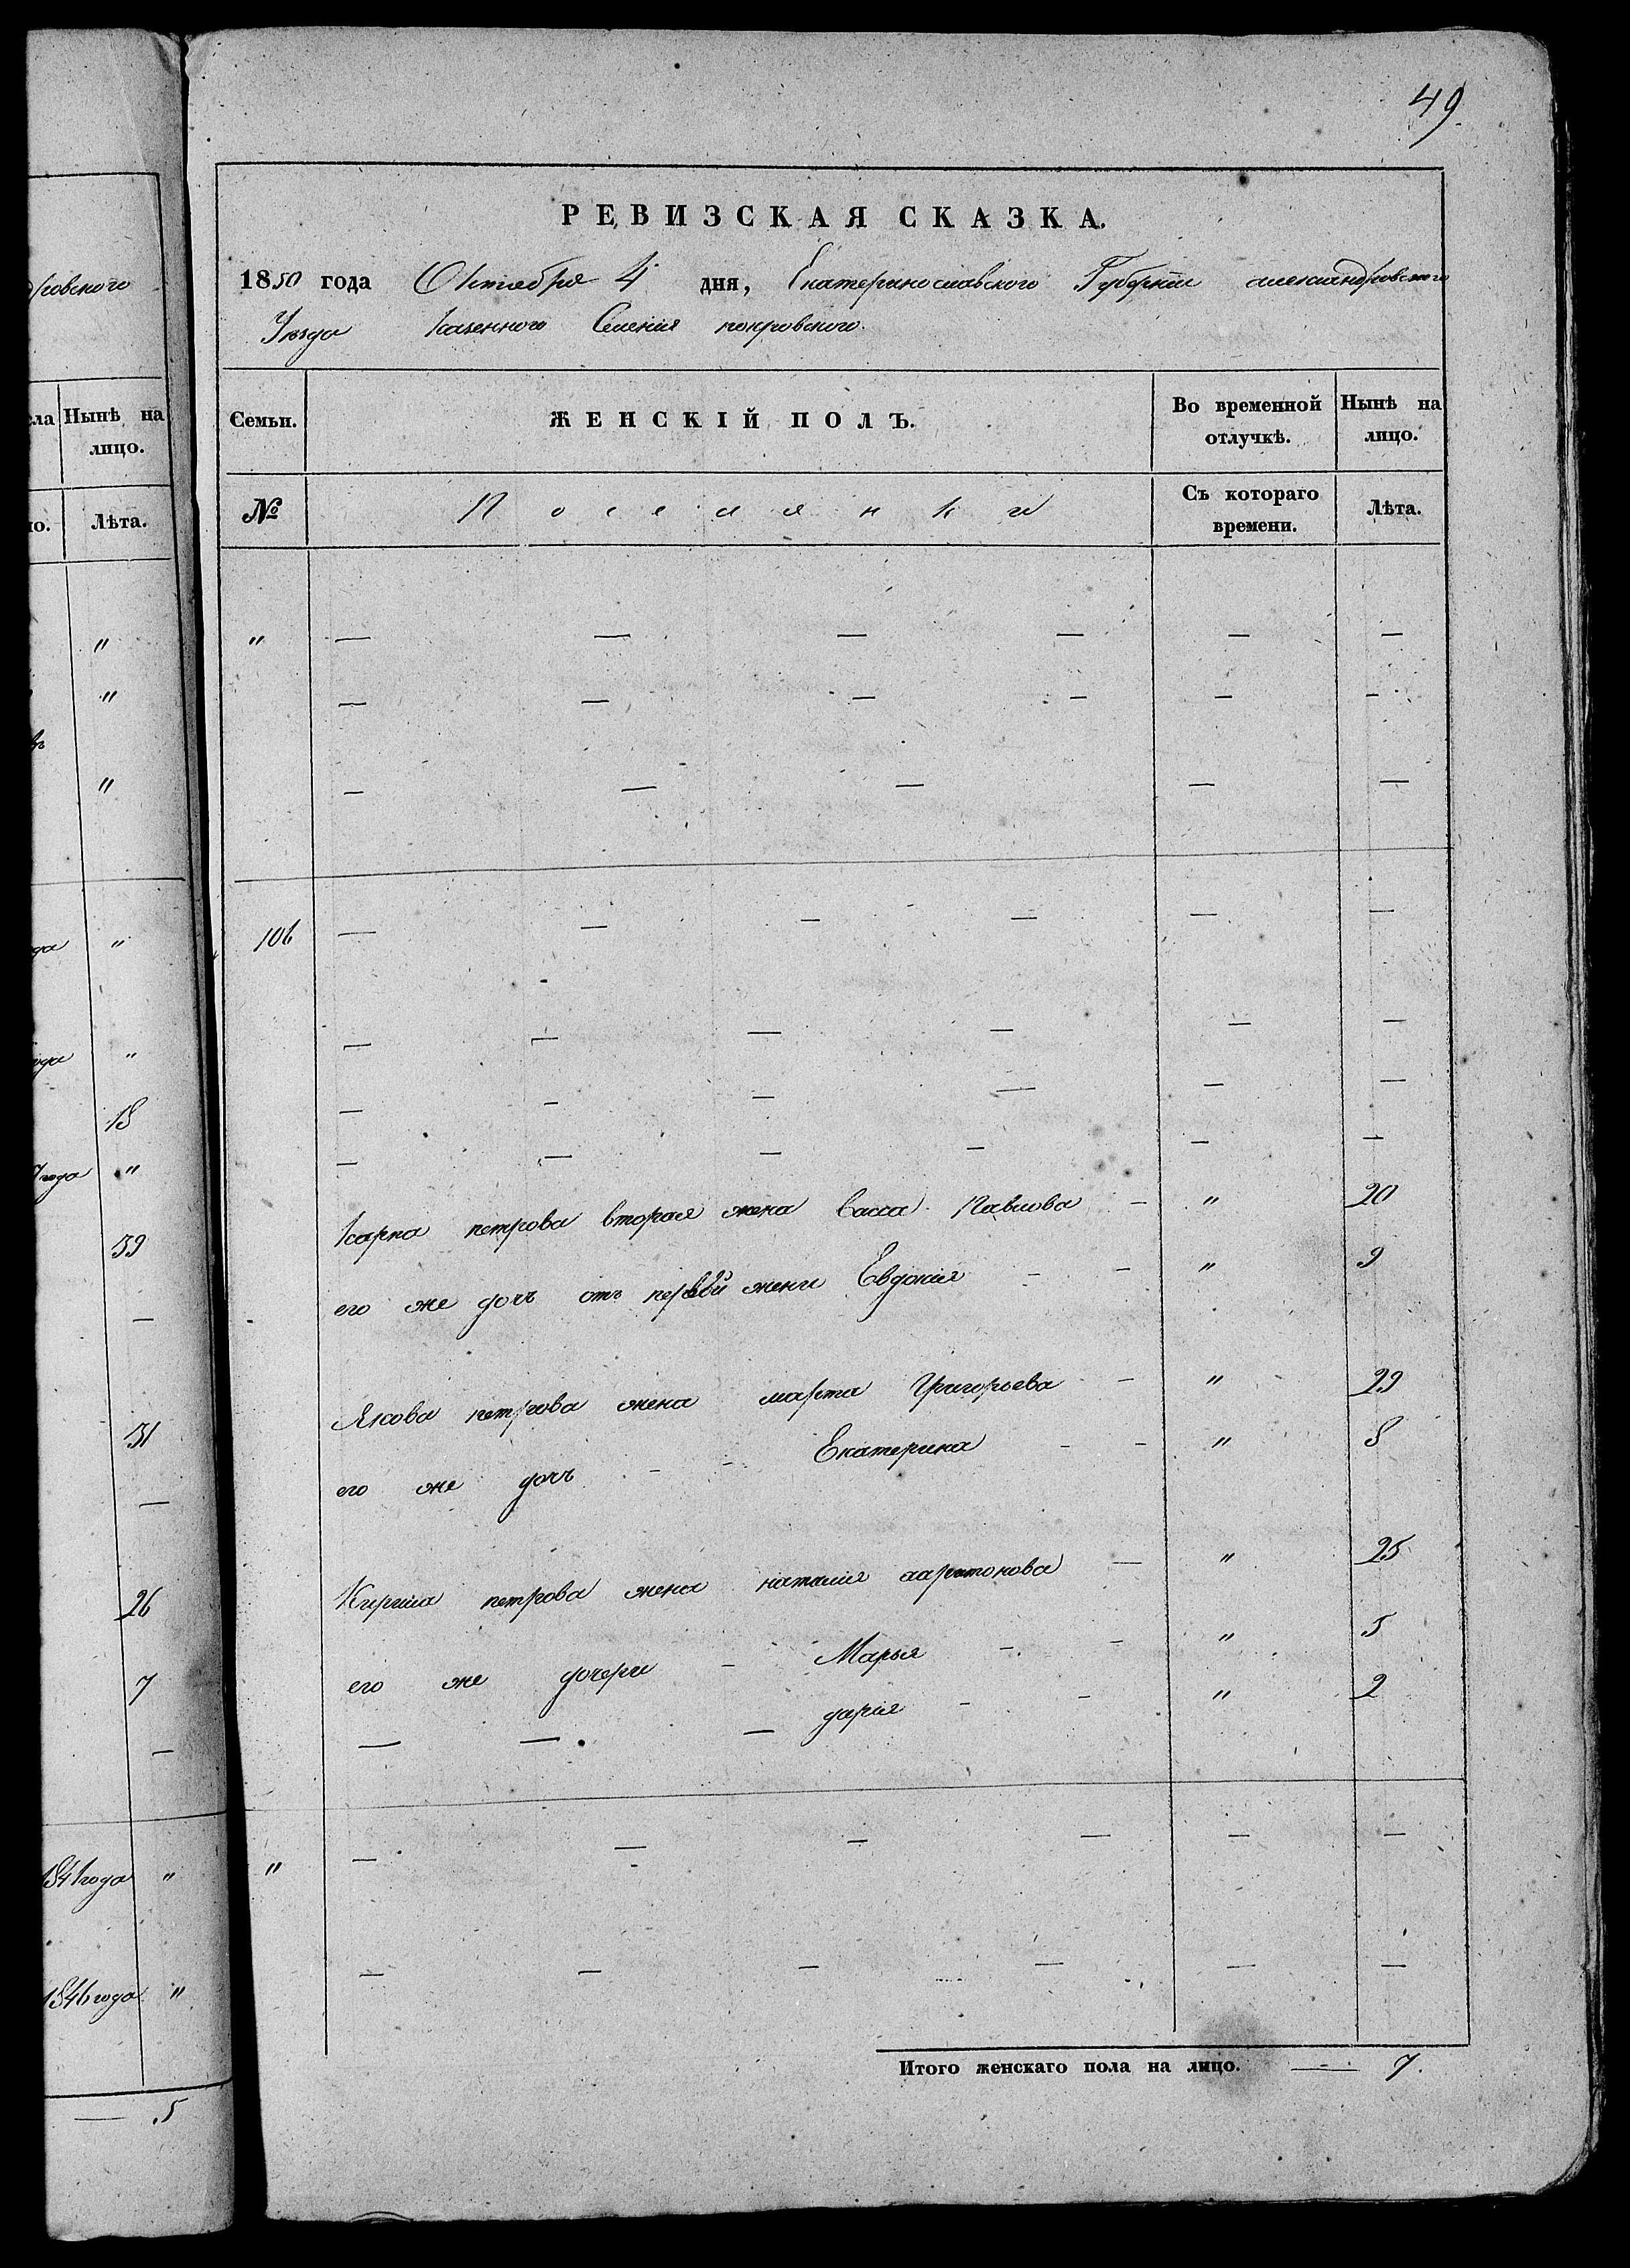 49.
РЕВИЗСКАЯ СКАЗКА.
1850 года Октября 4 дня, Екатеринославского Губернии александровского
Уезда Казенного Селения покровского.
Семьи. ЖЕНСКІЙ ПОЛЪ. Во временной отлучкѣ. Нынѣ на лицо.
№ Поселянки Съ котораго времени. Лѣта.
" — — — — — —
— — — — — —
— — — — —
106 — — — — — —
— — — — — —
— — — — — —
— — — — — —
Карпа петрова вторая жена Васса Павлова — " 20
его же дочь отъ первой жени Евдокия — — " 9
Якова петрова жена марта Григорьева — " 29
его же дочь — — Екатерина — — " 8
Кирила петрова жена наталия харитонова — " 25
его же дочери — Марья — — " 5
— — — дария — — " 2
" — — — — — —
— — — — — —
Итого женскаго пола на лицо. — 7.
дровского
Нынѣ на
лицо.
Лѣта.
"
"
"
года "
года "
18
года "
39
—
31
—
26
7
—
1841 года "
1846 года "
— 5